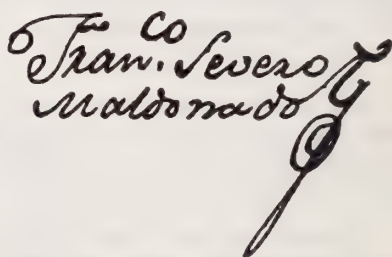 Fran.co Severo
Maldonado